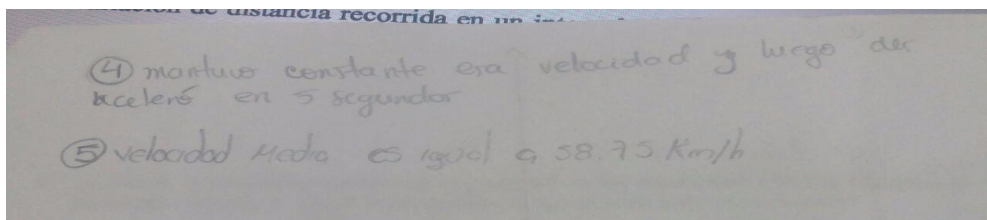 de distancia recorrida en un
④ mantuvo constante esa velocidad y luego des
aceleró en 5 segundos
⑤ velocidad Media es igual a 58.75 Km/h